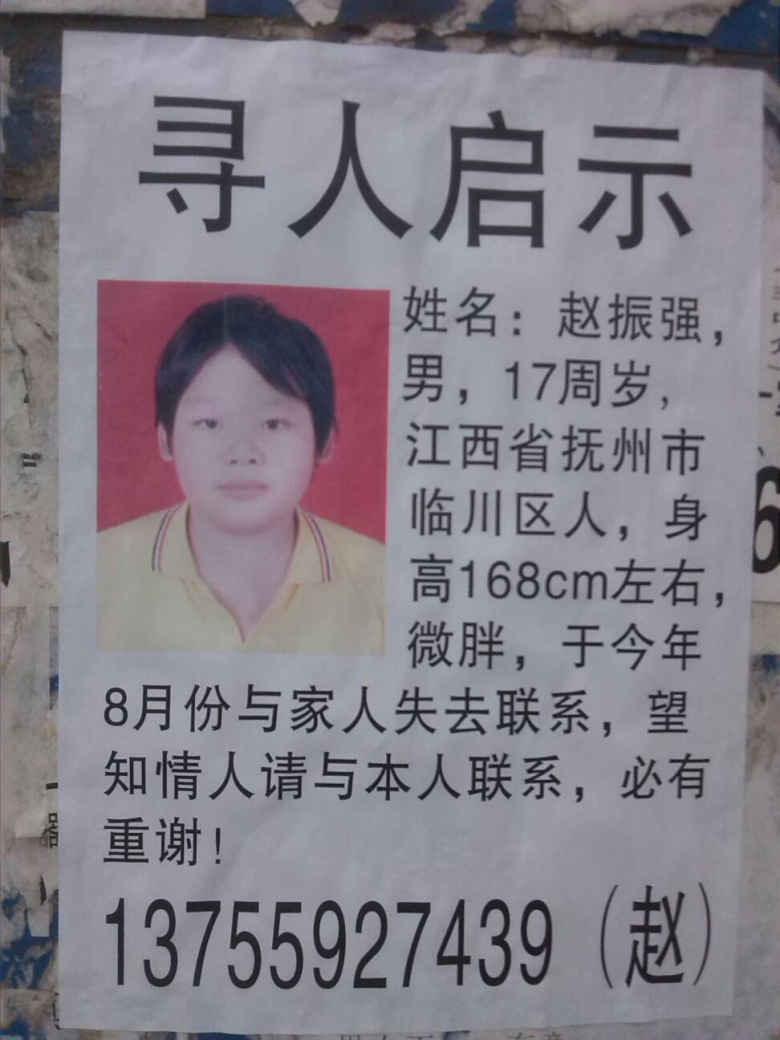 寻人启示
姓名：赵振强，
男，17周岁，
江西省抚州市
临川区人，身
高168cm左右，
微胖，于今年
8月份与家人失去联系，望
知情人请与本人联系，必有
重谢！
13755927439（赵）
6